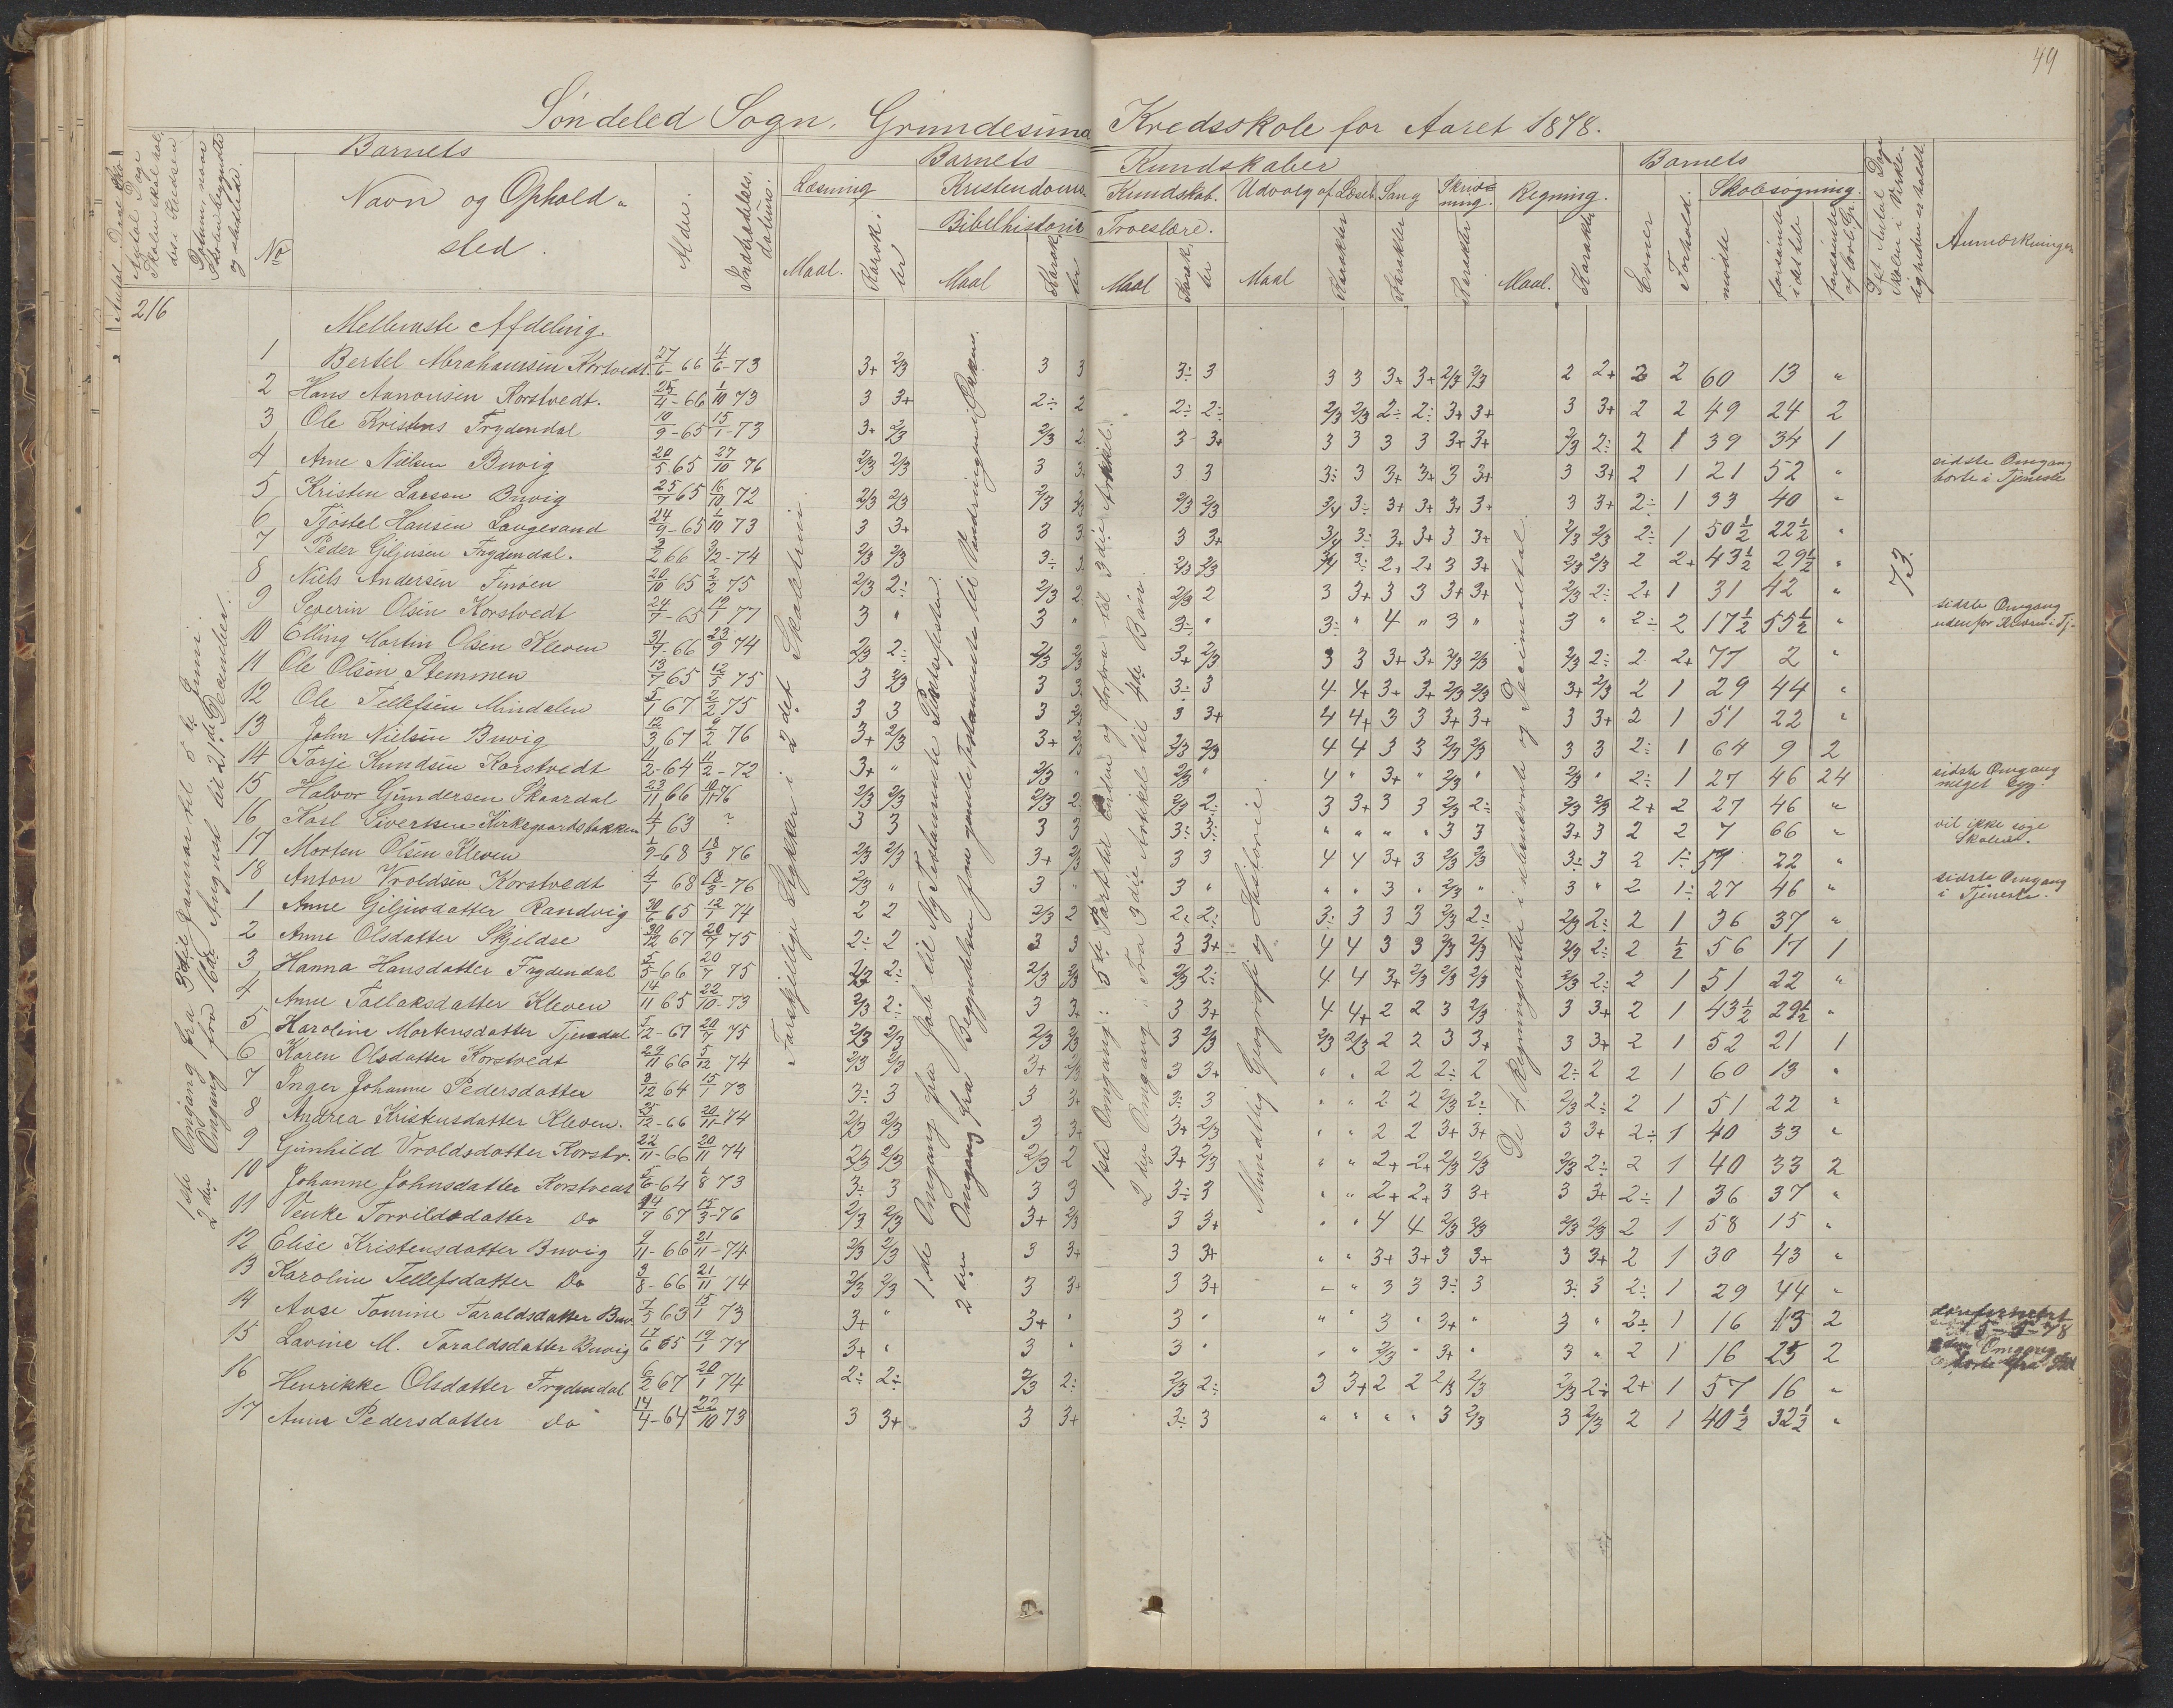 49
Søndeled Sogn. Grimdesund Kredsskole for Aaret 1878.
Barnets Barnets Kundskaber Barnets
No Navn og Ophold- sted. Alder. Indtrædelses datum.
Læsning Kristendoms Kundskab. Udvalg af Læseb. Sang Skriv- ning. Regning. Evner Forhold. Skolesøgning.
Bibelhistorie Troeslære.
Maal. Karak- ter Maal Karak- ter Maal Karak- ter Maal Karakter Karakter Karakter Maal. Karakter mødte forsømte i det hele forsømte af lovl. Gr. Anmærkninger
216
Mellemste Afdeling.
1 Bertel Abrahamsen Korstvedt. 27/6-66 4/6-73 3+ 2/3 3 3 3÷ 3 3 3 3+ 3+ 2/3 2/3 2 2+ 2 2 60 13 "
2 Hans Aanonsen Korstvedt. 25/4-66 1/10 73 3 3+ 2÷ 2 2÷ 2÷ 2/3 2/3 2÷ 2÷ 3+ 3+ 3 3+ 2 2 49 24 2
3 Ole Kristens Frydendal 10/9-65 15/1-73 3+ 2/3 2/3 2 3 3+ 3 3 3 3 3+ 3+ 2/3 2÷ 2 1 39 34 1
4 Arne Nilsen Buvig 20/5 65 27/10 76 2/3 2/3 3 3 3 3 3÷ 3 3+ 3+ 3 3+ 3 3+ 2 1 21 52 " sidste Omgang borte i Tjeneste
5 Kristen Larsen Buvig 25/7 65 16/10 72 2/3 2/3 2/3 2/3 2/3 2/3 3/4 3÷ 3+ 3+ 3+ 3+ 3 3+ 2÷ 1 33 40 "
6 Tjøstel Hansen Langesand 24/9-65 1/10 73 3 3+ 3 3 3 3+ 3/4 3÷ 3+ 3+ 3 3+ 2/3 2/3 2÷ 1 50½ 22½ "
7 Peder Giljusen Frydendal. 3/2 66 3/12-74 2/3 2/3 3÷ 3 2/3 2/3 3/4 3÷ 2+ 2+ 3 3+ 2/3 2/3 2 2+ 43½ 29½ "
8 Niels Andersen Finøen 20/10 65 2/2 75 2/3 2÷ 2/3 2 2/3 2 3 3+ 3 3 3+ 3+ 2/3 2÷ 2+ 1 31 42 "
9 Severin Olsen Korstvedt 24/7-65 19/1 77 3 " 3 " 3÷ " 3÷ " 4 " 3 " 3 " 2÷ 2 17½ 55½ " sidste Omgang
10 Elling Martin Olsen Kleven 31/7-66 23/9 74 2/3 2÷ 2/3 2/3 3+ 2/3 3 3 3+ 3+ 2/3 2/3 2/3 2÷ 2 2+ 71 2 "
11 Ole Olsen Stemmen 13/7 65 12/5 75 3 2/3 3 3 3÷ 3 4 4+ 3+ 3+ 2/3 2/3 3+ 2/3 2 1 29 44 "
12 Ole Tellefsen Mindalen 5/1 67 2/2 75 3 3 3 2/3 3 3+ 4 4+ 3 3 3+ 3+ 3 3+ 2 1 51 22 "
13 John Nielsen Buvig 12/3 67 9/2 76 3+ 2/3 3+ 2/3 2/3 2/3 4 4 3 3 2/3 2/3 3 3 2÷ 1 64 9 2
14 Torje Knudsen Korstvedt 11/2-64 11/2-72 3+ " 2/3 " 2/3 " 4 " 3+ " 2/3 " 2/3 " 2÷ 1 27 46 24 sidste Omgang meget syg.
15 Halvor Gundersen Skaardal 23/11 66 10/11-76 2/3 2/3 2/3 2 2/3 2÷ 3 3+ 3 3 2/3 2÷ 2/3 2/3 2+ 2 27 46 "
16 Karl Sivertsen Kirkegaardsbakken 4/7 63 ? 3 3 3 3 3÷ 3÷ " " " " 3 3 3+ 3 2 2 7 66 " vil ikke søge Skolen.
17 Morten Olsen Kleven 1/9-68 18/3 76 2/3 2/3 3+ 2/3 3 3 4 4 3+ 3 2/3 2/3 3÷ 3 2 1÷ 51 22 "
18 Anton Vroldsen Korstvedt 4/1 68 18/3-76 2/3 " 3 " 3 " " " 3 " 2/3 " 3 " 2 1÷ 27 46 " sidste Omgang i Tjeneste.
1 Anne Giljusdatter Randvig 30/6 65 12/1 74 2 2 2/3 2 2÷ 2÷ 3÷ 3 3 3 2/3 2÷ 2/3 2÷ 2 1 36 37 "
2 Anne Olsdatter Skjeldse 30/12 67 20/7 75 2÷ 2 3 3 3 3+ 4 4 3 3 2/3 2/3 2/3 2÷ 2 ½ 56 17 1
3 Hanna Hansdatter Frydendal 5/5-66 20/7 75 2/3 2÷ 2/3 2/3 2/3 2÷ 4 4 3+ 2/3 2/3 2/3 2/3 2÷ 2 1 51 22 "
4 Anne Tallaksdatter Kleven 14/11 65 22/10-73 2/3 2÷ 3 3+ 3 3+ 4 4+ 2 2 3 2/3 3 3+ 2 1 43½ 29½ "
5 Karoline Mortensdatter Tjendal 5/2-67 20/7 75 2/3 2/3 2/3 2/3 3 2/3 2/3 2/3 2 2 3 3+ 3 3+ 2 1 52 21 1
6 Karen Olsdatter Korstvedt 29/11 66 5/12 74 2/3 2/3 3+ 2/3 3 3+ " " 2 2 2÷ 2 2÷ 2 2 1 60 13 "
7 Inger Johanne Pedersdatter 3/12 64 15/1 73 3÷ 3 3 3+ 3÷ 3 " " 2 2 2/3 2÷ 2/3 2÷ 2 1 51 22 "
8 Andrea Kristensdatter Kleven. 25/12-66 20/11-74 2/3 2/3 3 3+ 3+ 2/3 " " 2 2 3+ 3+ 3 3+ 2÷ 1 40 33 "
9 Gunhild Vroldsdatter Korstv. 22/11-66 20/11 74 2/3 2/3 2/3 2 3+ 2/3 " " 2+ 2+ 2/3 2/3 2/3 2÷ 2 1 40 33 2
10 Johanne Johnsdatter Korstvedt 5/6-64 1/8 73 3÷ 3 3 3 3÷ 3 " " 2+ 2+ 3 3+ 3 3+ 2÷ 1 36 37 "
11 Venke Torvildsdatter do 14/7 67 15/3-76 2/3 2/3 3+ 2/3 3 3+ " " 4 4 2/3 2/3 2/3 2/3 2 1 58 15 "
12 Elise Kristensdatter Buvig 9/11-66 21/11-74 2/3 2/3 3 3+ 3 3+ " " 3+ 3+ 3 3+ 3 3+ 2 1 30 43 "
13 Karoline Tellefsdatter do 3/8-66 21/11 74 2/3 2/3 3 3+ 3 3+ " " 3 3 3÷ 3 3÷ 3 2÷ 1 29 44 "
14 Aase Tomine Taraldsdatter Buv 7/5 63 15/1 73 3+ " 3+ " 3 " " " 3 " 3+ " 3 " 2÷ 1 16 13 2
15 Lavine M. Taraldsdatter Buvig 17/6 65 19/1 77 3+ " 3 " 3 " " " 2/3 " 3+ " 3 " 2 1 16 25 2 Omgang borte fra
16 Henrikke Olsdatter Frydendal 6/2 67 20/1 74 2÷ 2÷ 2/3 2÷ 2/3 2÷ 3 3+ 2 2 2/3 2/3 2/3 2÷ 2+ 1 57 16 "
17 Anne Pedersdatter do 14/4-64 22/10 73 3 3+ 3 3+ 3÷ 3 " " " " 3 2/3 3 2/3 2 1 40½ 32½ "
1ste Omgang fra 3die Januar til 5te Juni.
2den Omgang fra 16de August til 21de December.
Forskjellige Stykker i 2det Skoletrin.
1ste Omgang fra Job til Ny Testamente Pintsefesten.
2den Omgang fra Begyndelsen fra gamle Testamente til Vandringen i Ørkene.
1ste Omgang: 5te Part til Enden og forfra til 3die Artikel.
2den Omgang: Fra 3die Artikel til 4de Bøn.
Mundtlig Geografi og Historie.
De 4 Regningsarter i benævnte og Decimaltal.
73.